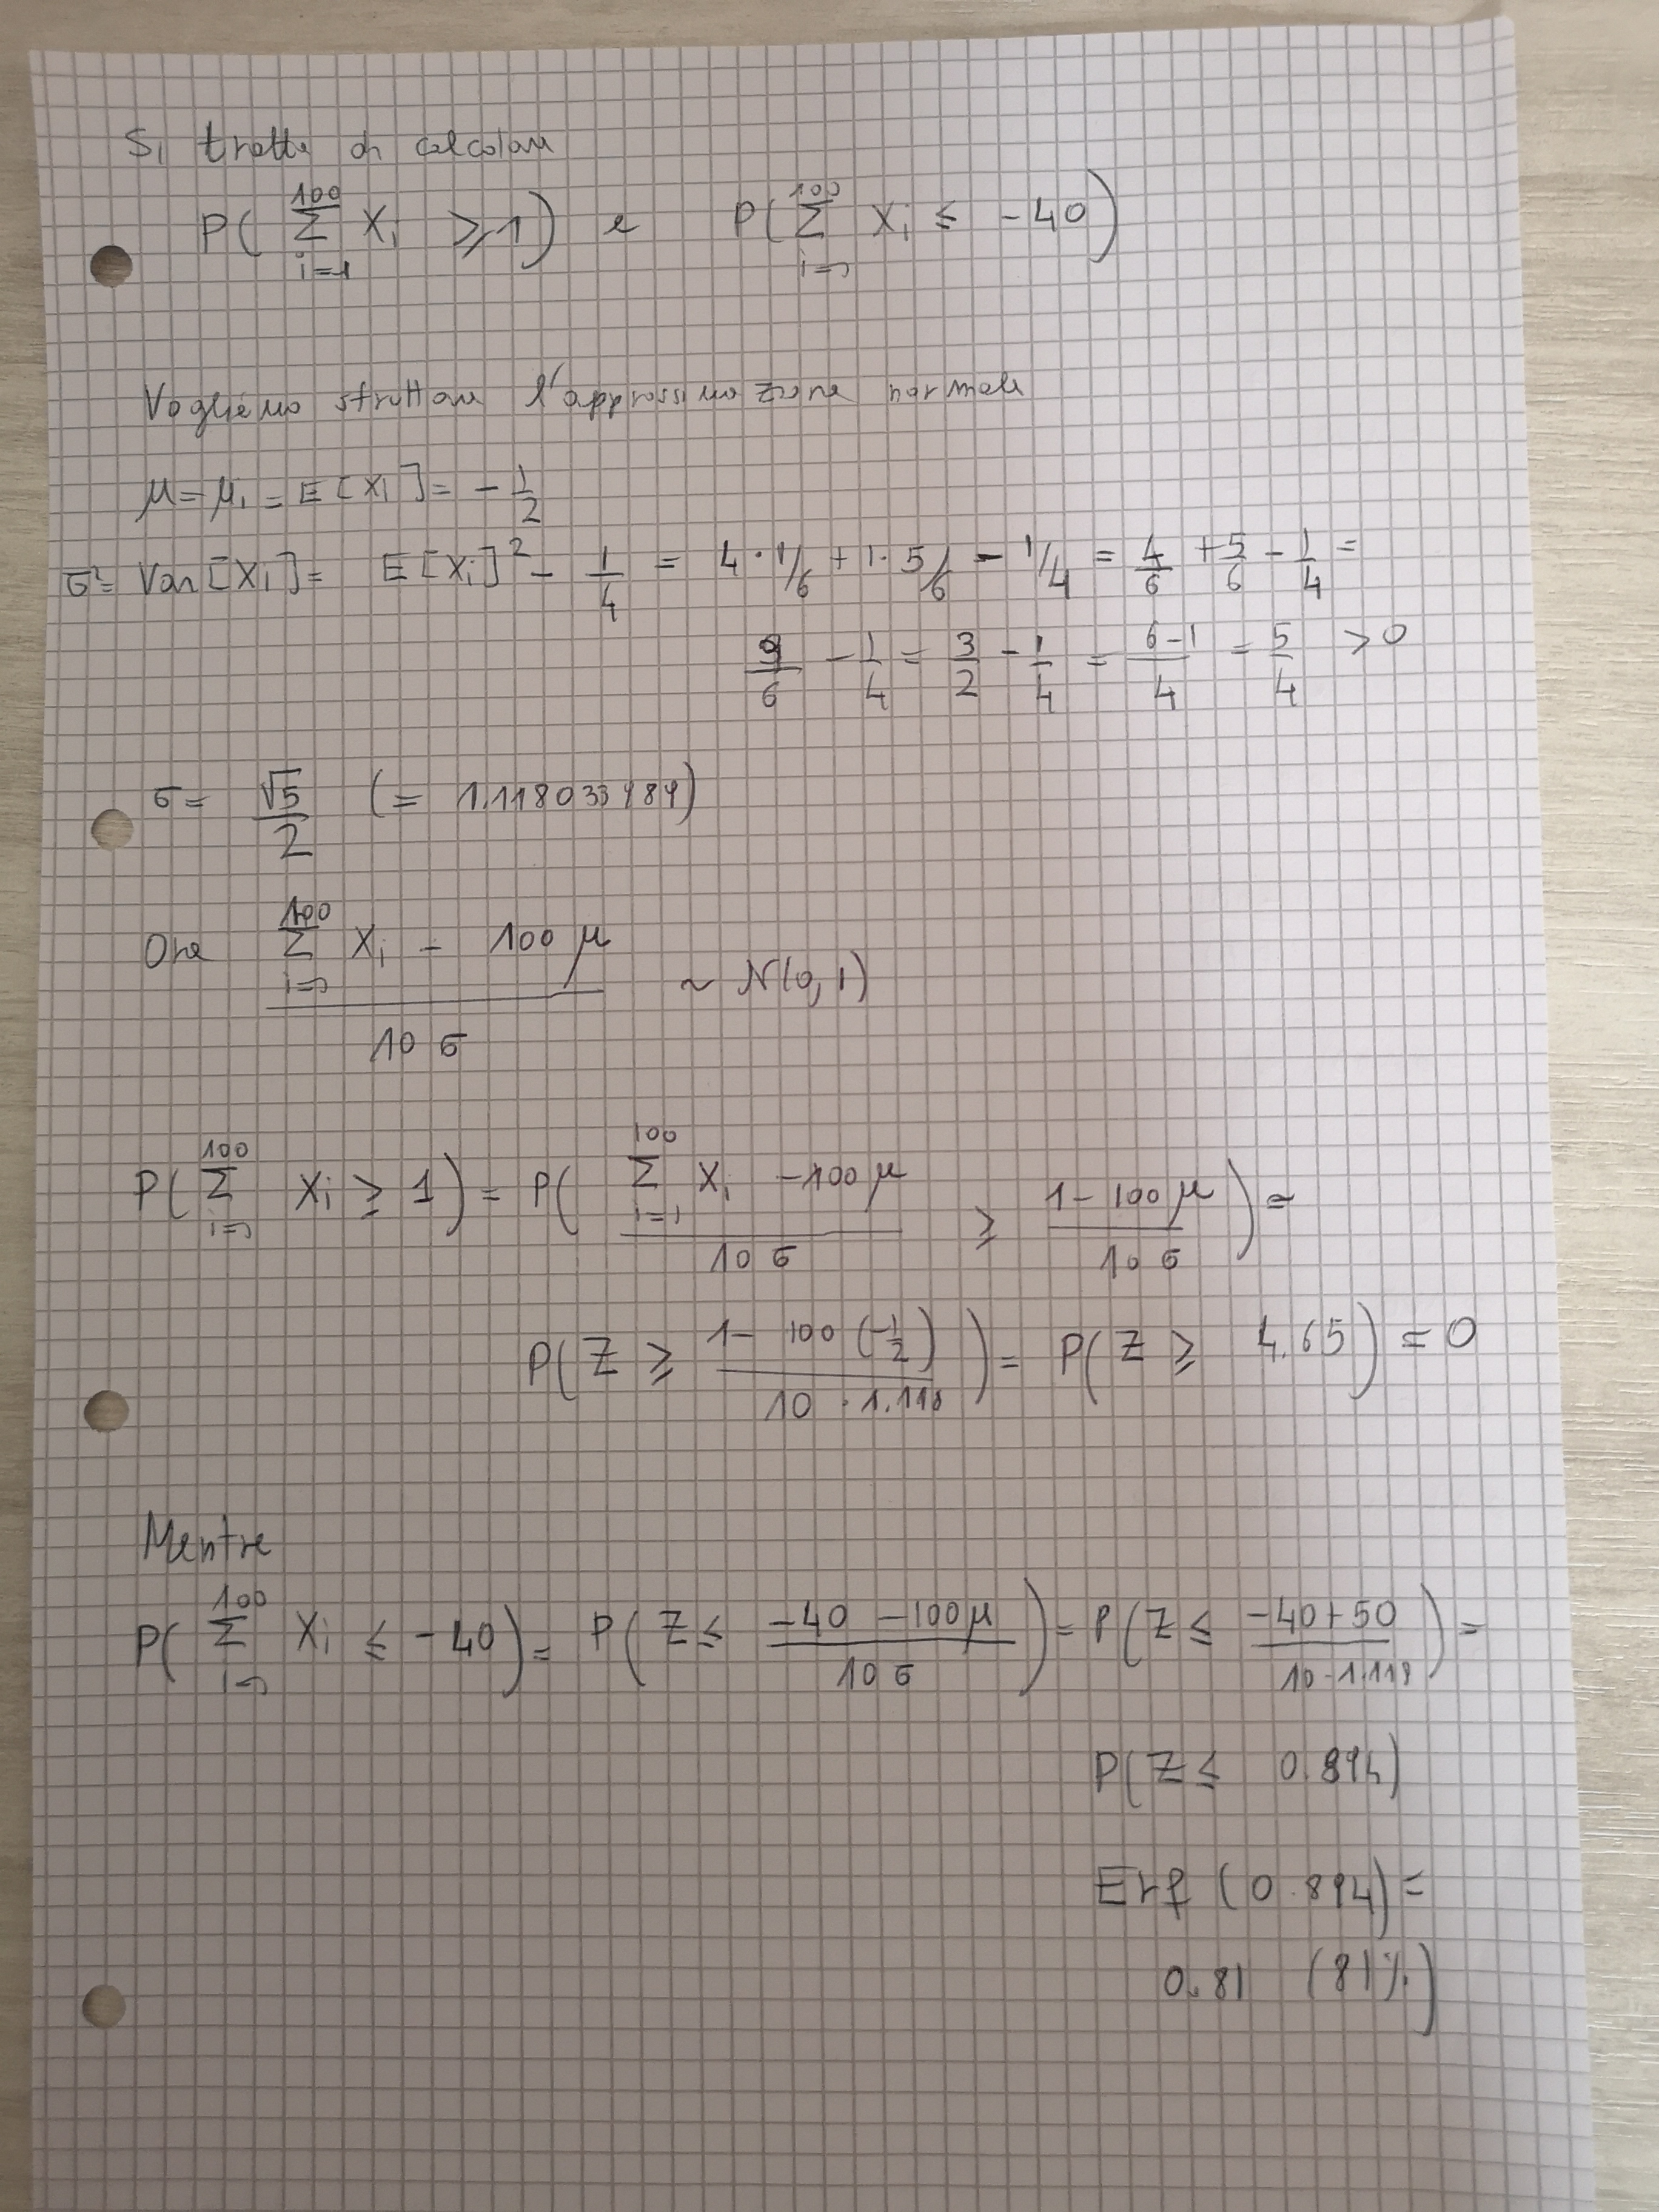 Si tratta di calcolare
P( 100 Σ i=1 Xi ≥ 1 ) e P( 100 Σ i=1 Xi ≤ -40 )
Vogliamo sfruttare l'approssimazione normale
μ = μi = E[Xi] = - 1/2
σ² = Var[Xi] = E[Xi]² - 1/4 = 4 · 1/6 + 1 · 5/6 - 1/4 = 4/6 + 5/6 - 1/4 =
9/6 - 1/4 = 3/2 - 1/4 = (6-1)/4 = 5/4 > 0
σ = √5/2 (= 1.118033989)
Ora ( 100 Σ i=1 Xi - 100 μ ) / 10 σ ~ N(0,1)
P( 100 Σ i=1 Xi ≥ 1 ) = P( ( 100 Σ i=1 Xi - 100 μ ) / 10 σ ≥ ( 1 - 100 μ ) / 10 σ ) =
P( Z ≥ ( 1 - 100 (-1/2) ) / 10 · 1.118 ) = P( Z ≥ 4.65 ) = 0
Mentre
P( 100 Σ i=1 Xi ≤ -40 ) = P( Z ≤ ( -40 - 100 μ ) / 10 σ ) = P( Z ≤ ( -40 + 50 ) / 10 · 1.118 ) =
P( Z ≤ 0.894 )
Erf ( 0.894 ) =
0.81 (81%)